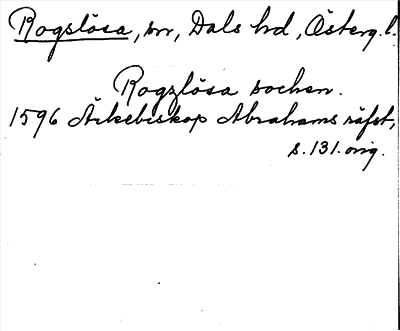 Rogslösa, sn, Dals hd, Österg. l.
Rogzlösa sochen.
1596 Ärkebiskop Abrahams räfst,
s. 131. orig.